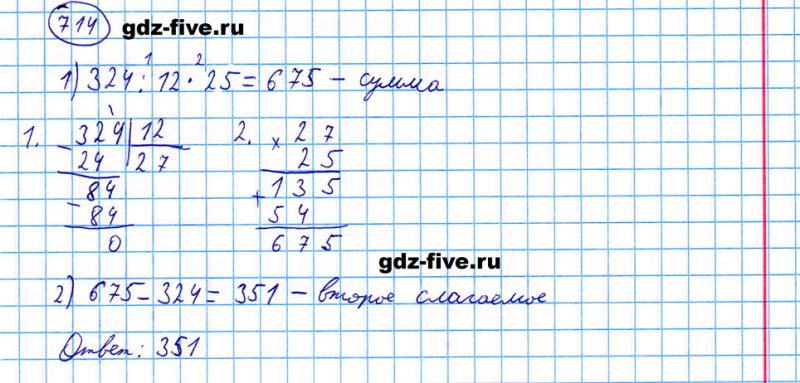 714 gdz-five.ru
1) 324 :¹ 12 ·² 25 = 675 – сумма
1. 324 | 12 2. × 27
– 24 | 27 25
84 + 135
– 84 54
0 675
gdz-five.ru
2) 675 – 324 = 351 – второе слагаемое
Ответ: 351